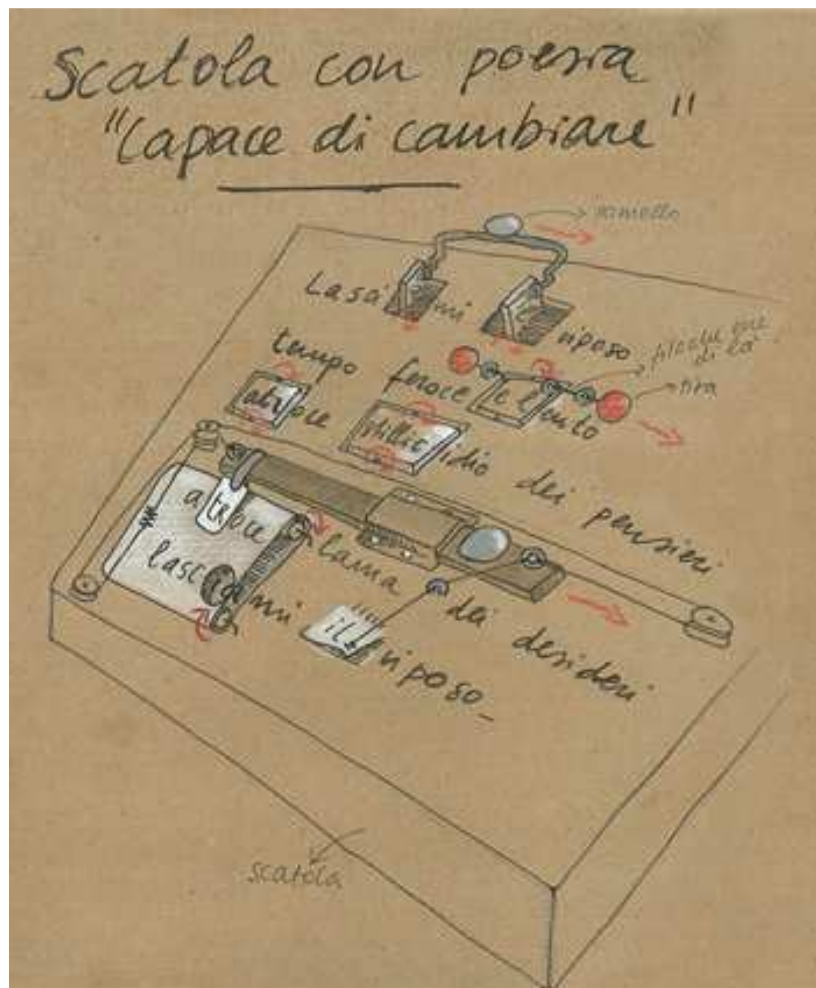 Scatola con poesia
"Capace di cambiare"
Lascia mi il riposo
tempo feroce e lento
atroce stillicidio dei pensieri
atroce lama dei desideri
lasciami il riposo
tira
scatola